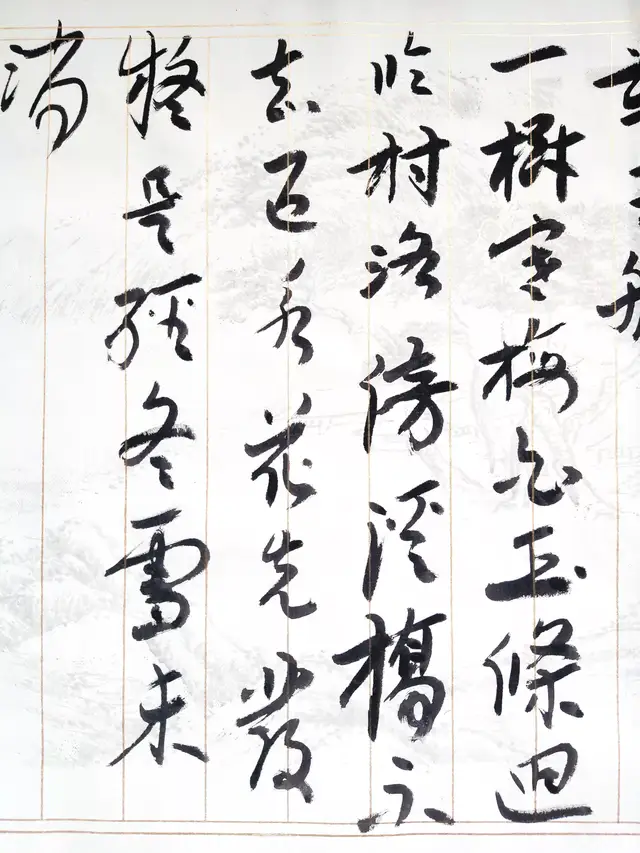 一樹寒梅白玉條迴
臨村路傍溪橋不
知近水花先發
疑是經冬雪未
消